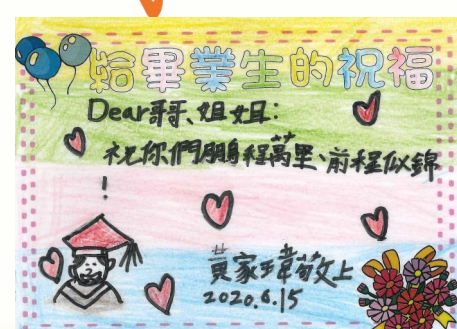 給畢業生的祝福
Dear哥哥、姐姐:
祝你們鵬程萬里、前程似錦
!
黃家瑋敬上
2020.6.15